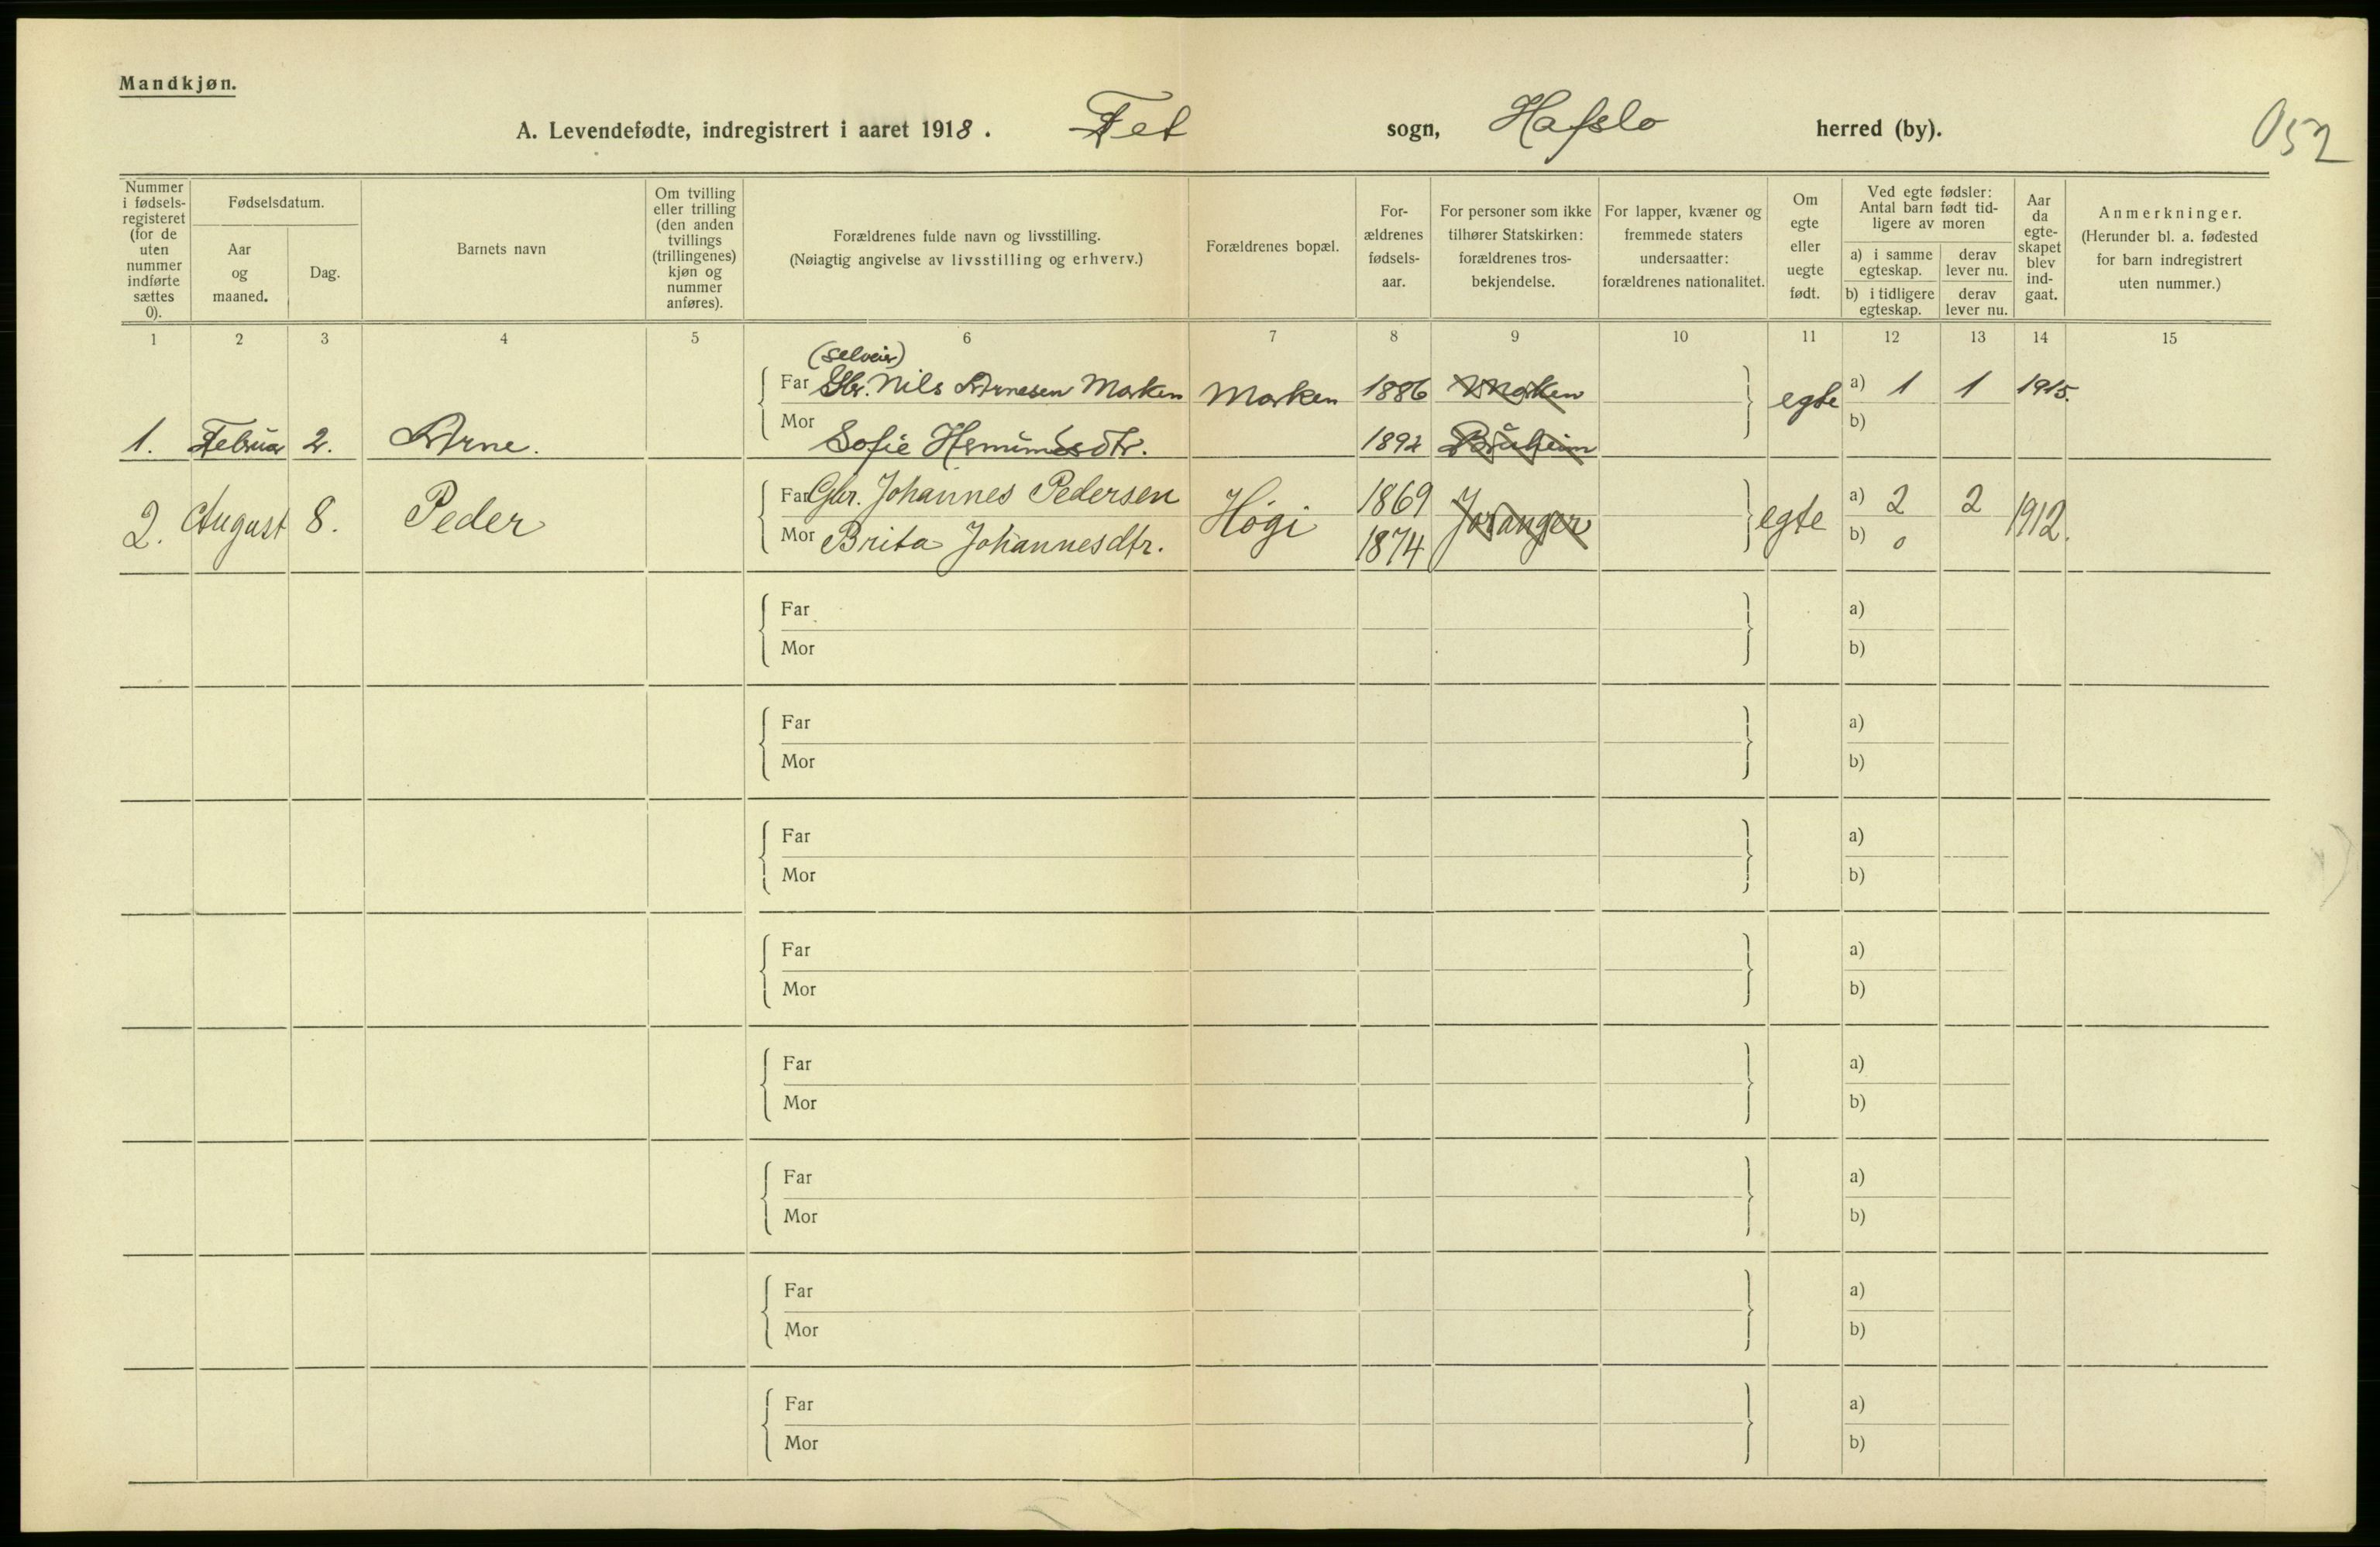 Mandkjøn.
A. Levendefødte, indregistrert i aaret 1918. Fet sogn, Hafslo herred (by).
052
Nummer i fødsels-registeret (for de uten nummer indførte sættes 0).
Fødselsdatum.
Aar og maaned.
Dag.
Barnets navn
Om tvilling eller trilling (den anden tvillings (trillingenes) kjøn og nummer anføres).
Forældrenes fulde navn og livsstilling.
(Nøiagtig angivelse av livsstilling og erhverv.)
Forældrenes bopæl.
For-ældrenes fødsels-aar.
For personer som ikke tilhører Statskirken: forældrenes tros-bekjendelse.
For lapper, kvæner og fremmede staters undersaatter: forældrenes nationalitet.
Om egte eller uegte født.
Ved egte fødsler: Antal barn født tid-ligere av moren
a) i samme egteskap.
derav lever nu.
b) i tidligere egteskap.
derav lever nu.
Aar da egte-skapet blev ind-gaat.
Anmerkninger.
(Herunder bl. a. fødested for barn indregistrert uten nummer.)
1 2 3 4 5 6 7 8 9 10 11 12 13 14 15
(selveier)
Far Gbr. Nils Arnesen Marken Marken 1886 Marken egte a) 1 1 1915.
1. Februar 2. Arne. Mor Sofie Hermundsdtr. 1892 Bruheim b)
Far Gbr. Johannes Pedersen Høgi 1869 Joranger egte a) 2 2 1912.
2. August 8. Peder Mor Brita Johannesdtr. 1874 b) 0
Far a)
Mor b)
Far a)
Mor b)
Far a)
Mor b)
Far a)
Mor b)
Far a)
Mor b)
Far a)
Mor b)
Far a)
Mor b)
Far a)
Mor b)